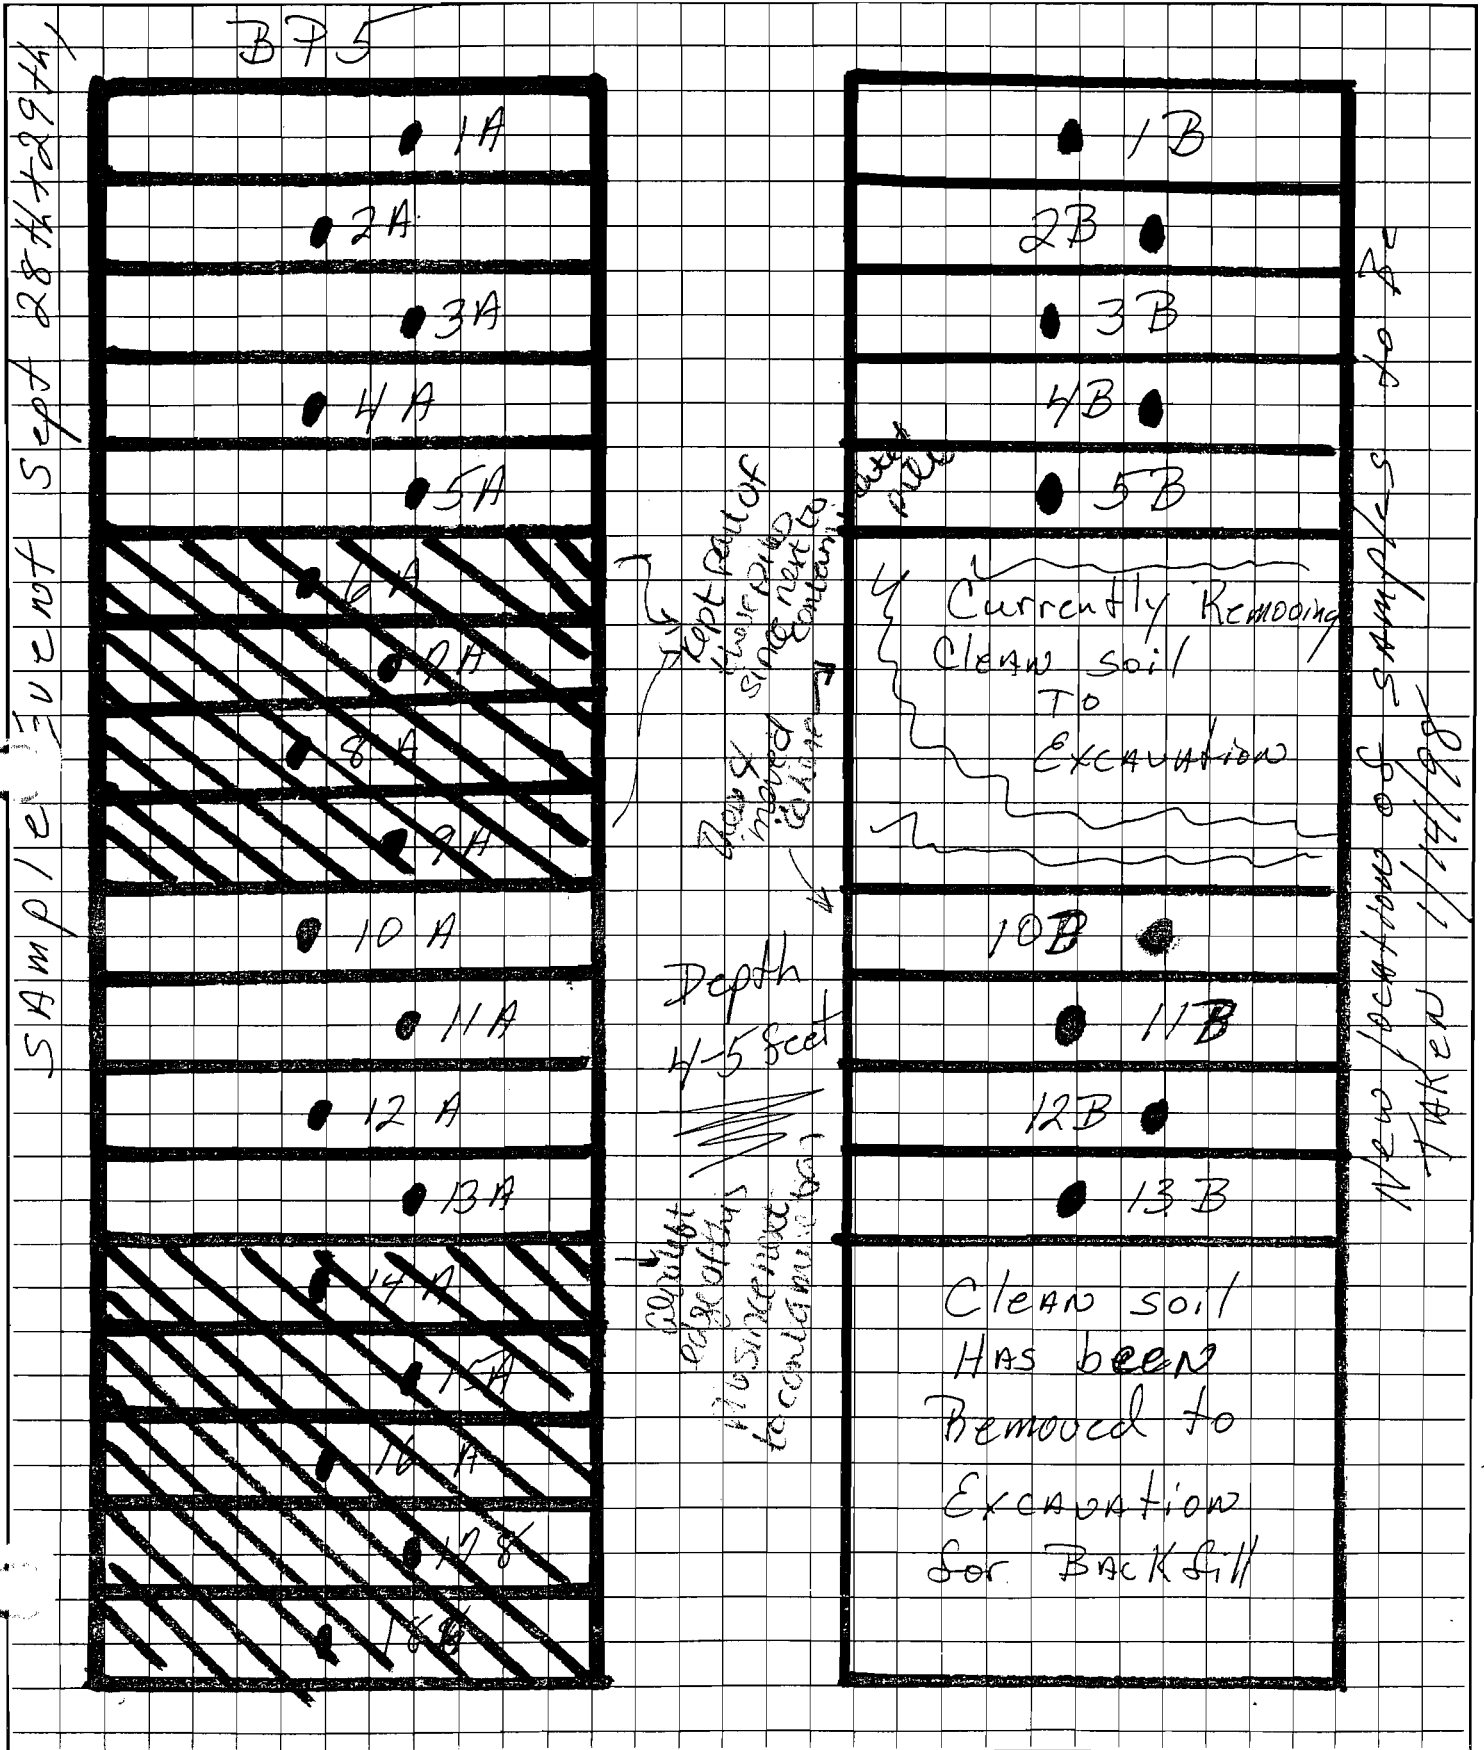 BP5
Sample Event Sept 28th + 29th,
1A
2A
3A
4A
5A
6A
7A
8A
9A
10 A
11 A
12 A
13 A
14 A
15A
16 A
17
18
Kept part of
those piles
since next to
contami
nated
piles
moved
to here
Depth
4-5 feet
edge of this
since next
to contamination
1B
2B
3B
4B
5B
Currently Removing
Clean soil
To
Excavation
10B
11B
12B
13B
Clean soil
Has been
Removed to
Excavation
for Backfill
New location of samples to be
Taken 1/14/98